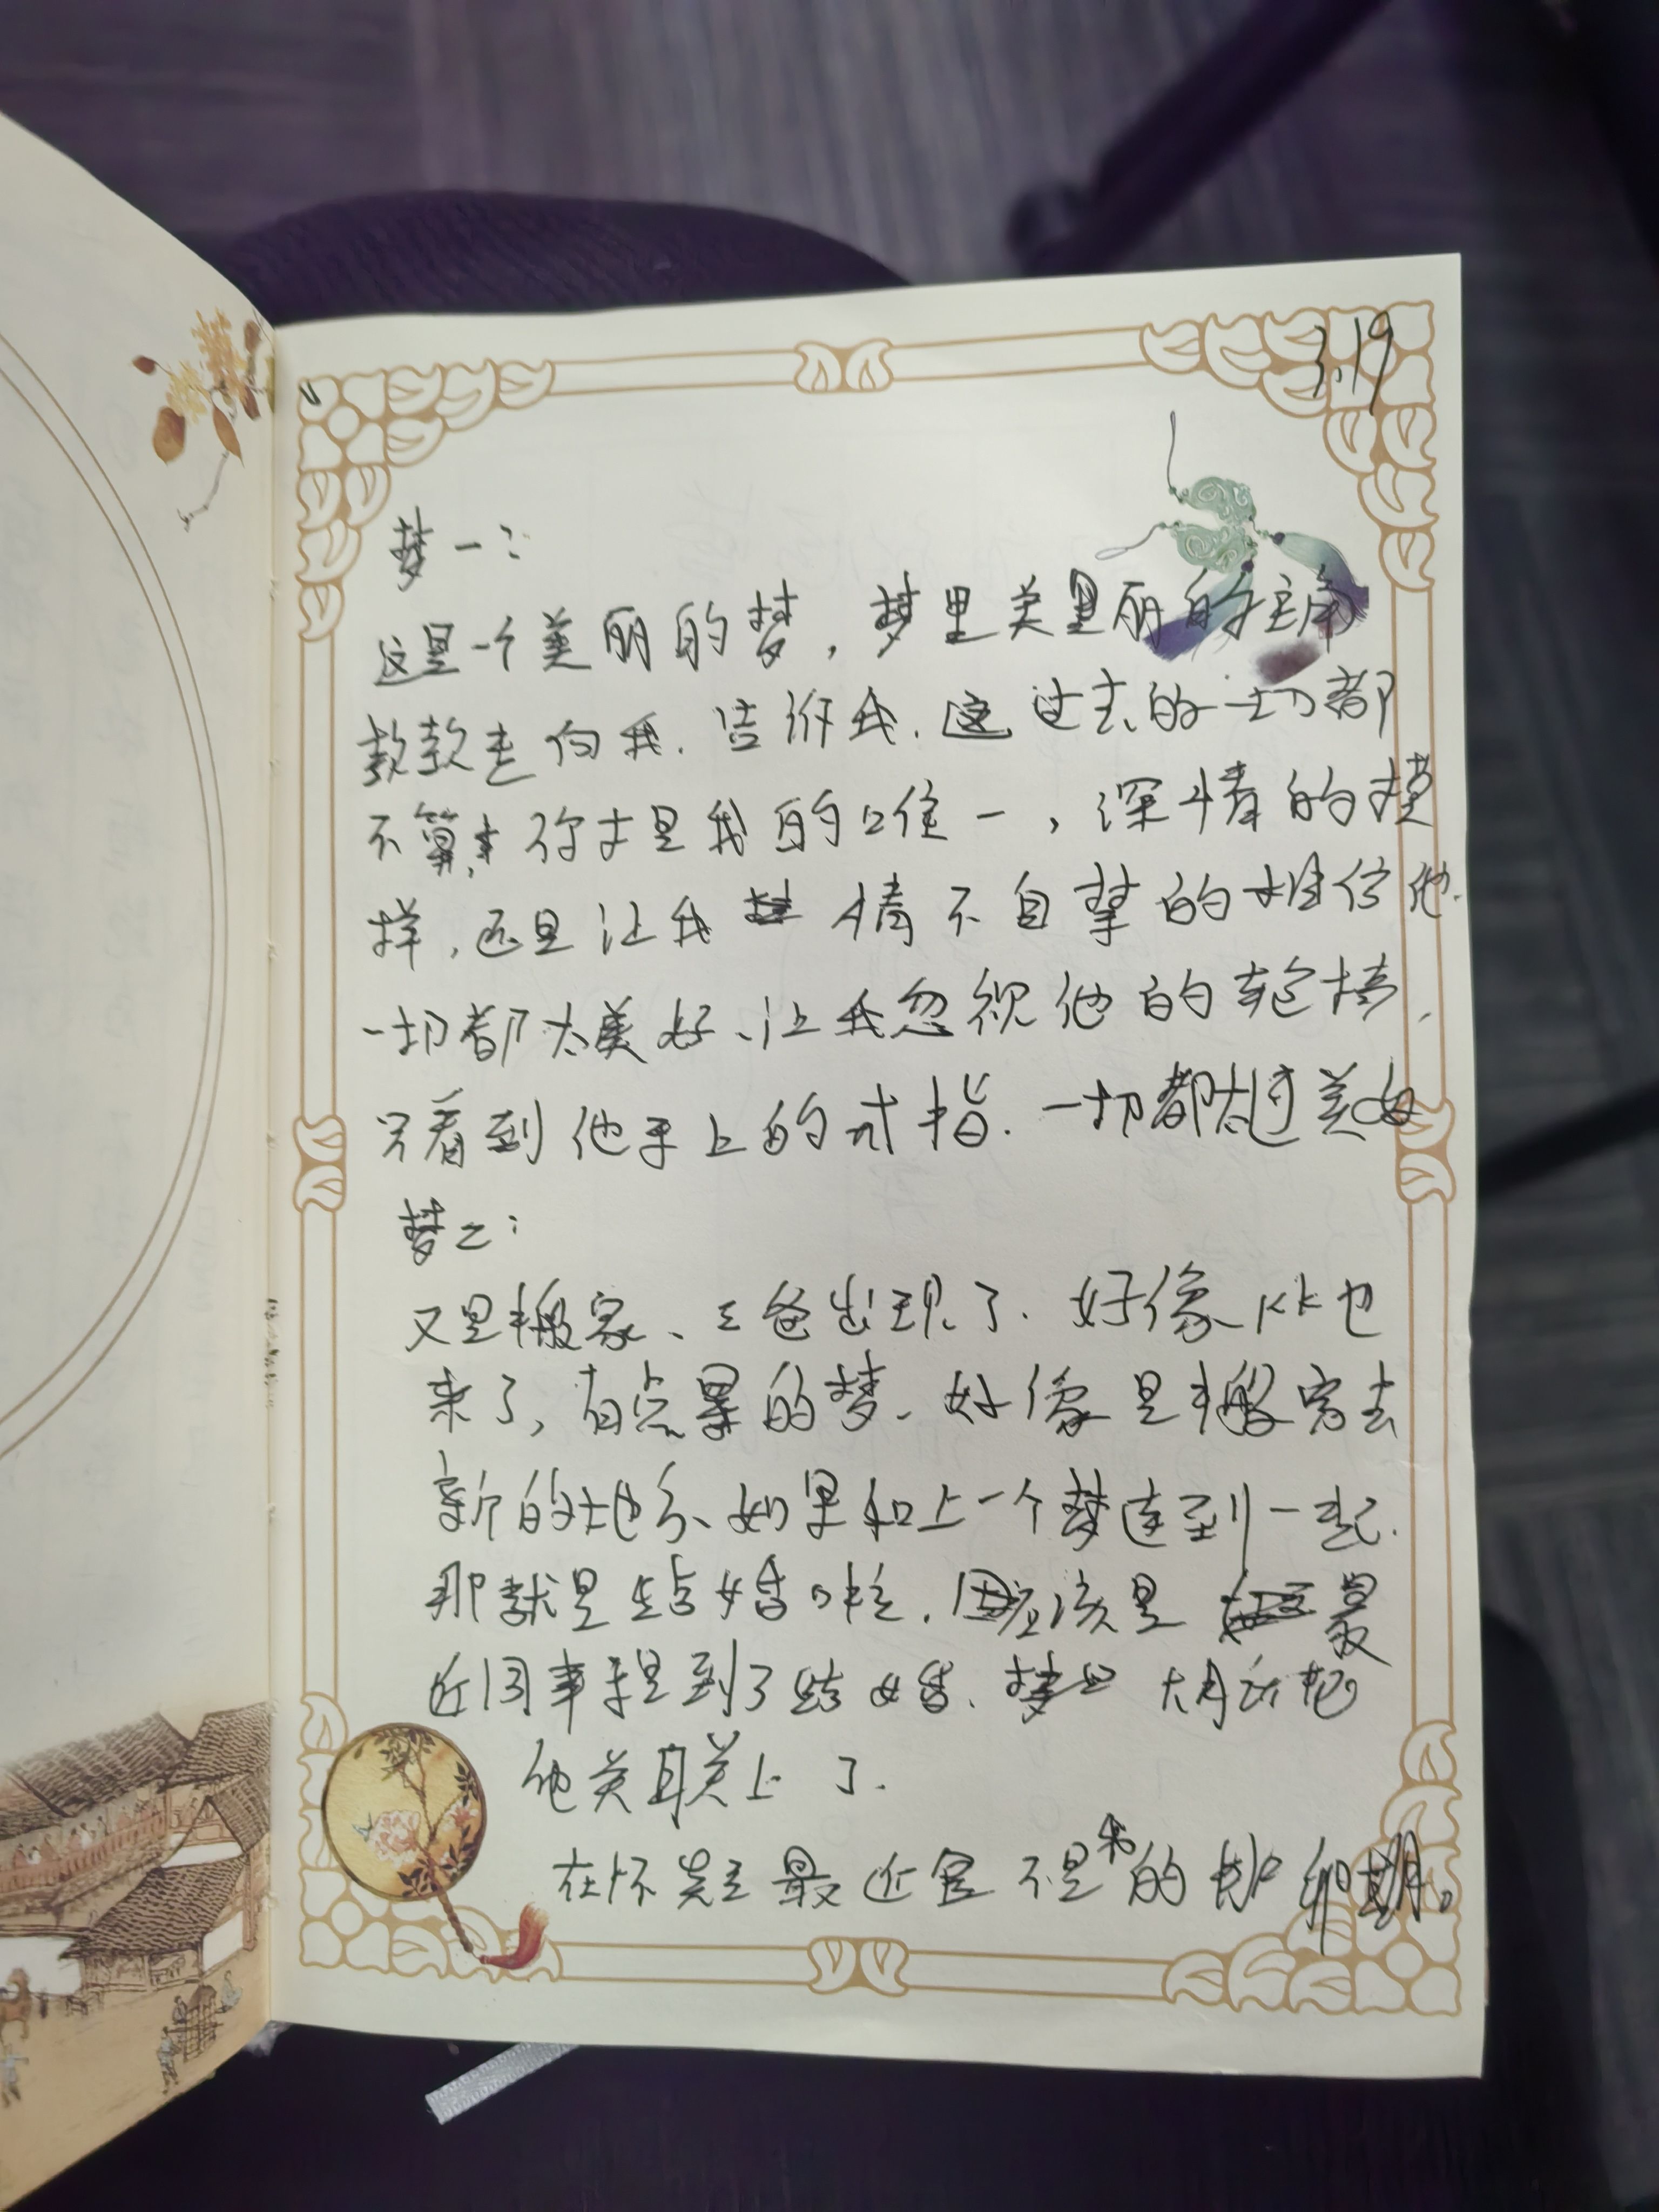 3.19
梦一：
这是一个美丽的梦，梦里美丽的主角
款款走向我.告诉我.这过去的一切都
不算,你才是我的唯一，深情的模
样,还是让我情不自禁的相信他.
一切都太美好、让我忽视他的
只看到他手上的戒指.一切都太过美好
梦二：
又是搬家、三爸出现了.好像kk也
来了,有点累的梦、好像是搬家去
新的地方、如果和上一个梦连到一起.
那就是结婚啦.应该是最
近同事提到了结婚、大脑就把
他关联上了.
在怀疑最近是不是我的排卵期。